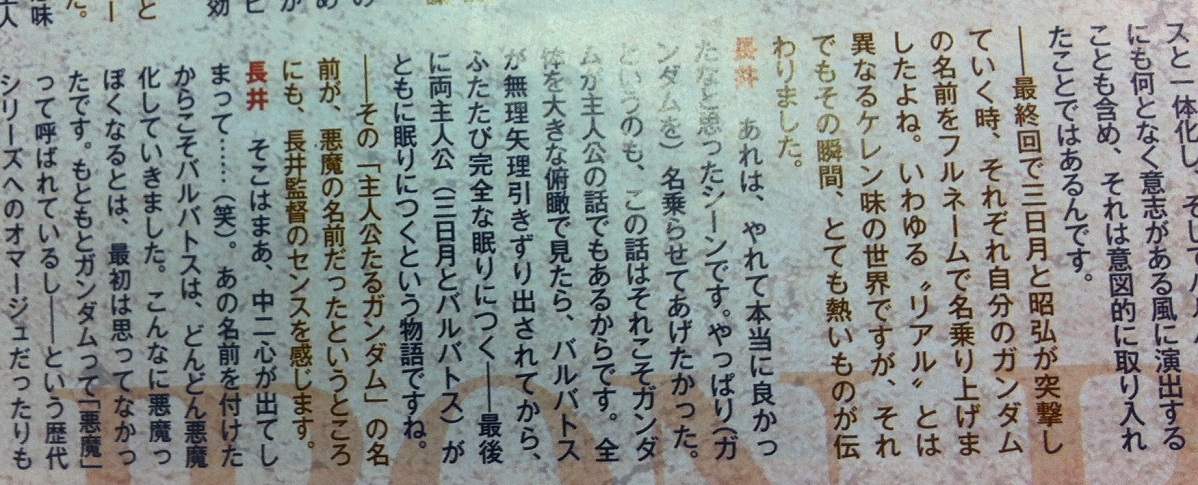 スと一体化し、そして
にも何となく意志がある風に演出する
ことも含め、それは意図的に取り入れ
たことではあるんです。
――最終回で三日月と昭弘が突撃し
ていく時、それぞれ自分のガンダム
の名前をフルネームで名乗り上げま
したよね。いわゆる〝リアル〟とは
異なるケレン味の世界ですが、それ
でもその瞬間、とても熱いものが伝
わりました。
長井　あれは、やれて本当に良かっ
たなと思ったシーンです。やっぱり(ガ
ンダムを)名乗らせてあげたかった。
というのも、この話はそれこそガンダ
ムが主人公の話でもあるからです。全
体を大きな俯瞰で見たら、バルバトス
が無理矢理引きずり出されてから、
ふたたび完全な眠りにつく――最後
に両主人公(三日月とバルバトス)が
ともに眠りにつくという物語ですね。
――その「主人公たるガンダム」の名
前が、悪魔の名前だったというところ
にも、長井監督のセンスを感じます。
長井　そこはまあ、中二心が出てし
まって……(笑)。あの名前を付けた
からこそバルバトスは、どんどん悪魔
化していきました。こんなに悪魔っ
ぽくなるとは、最初は思ってなかっ
たです。もともとガンダムって「悪魔」
って呼ばれているし――という歴代
シリーズへのオマージュだったりも